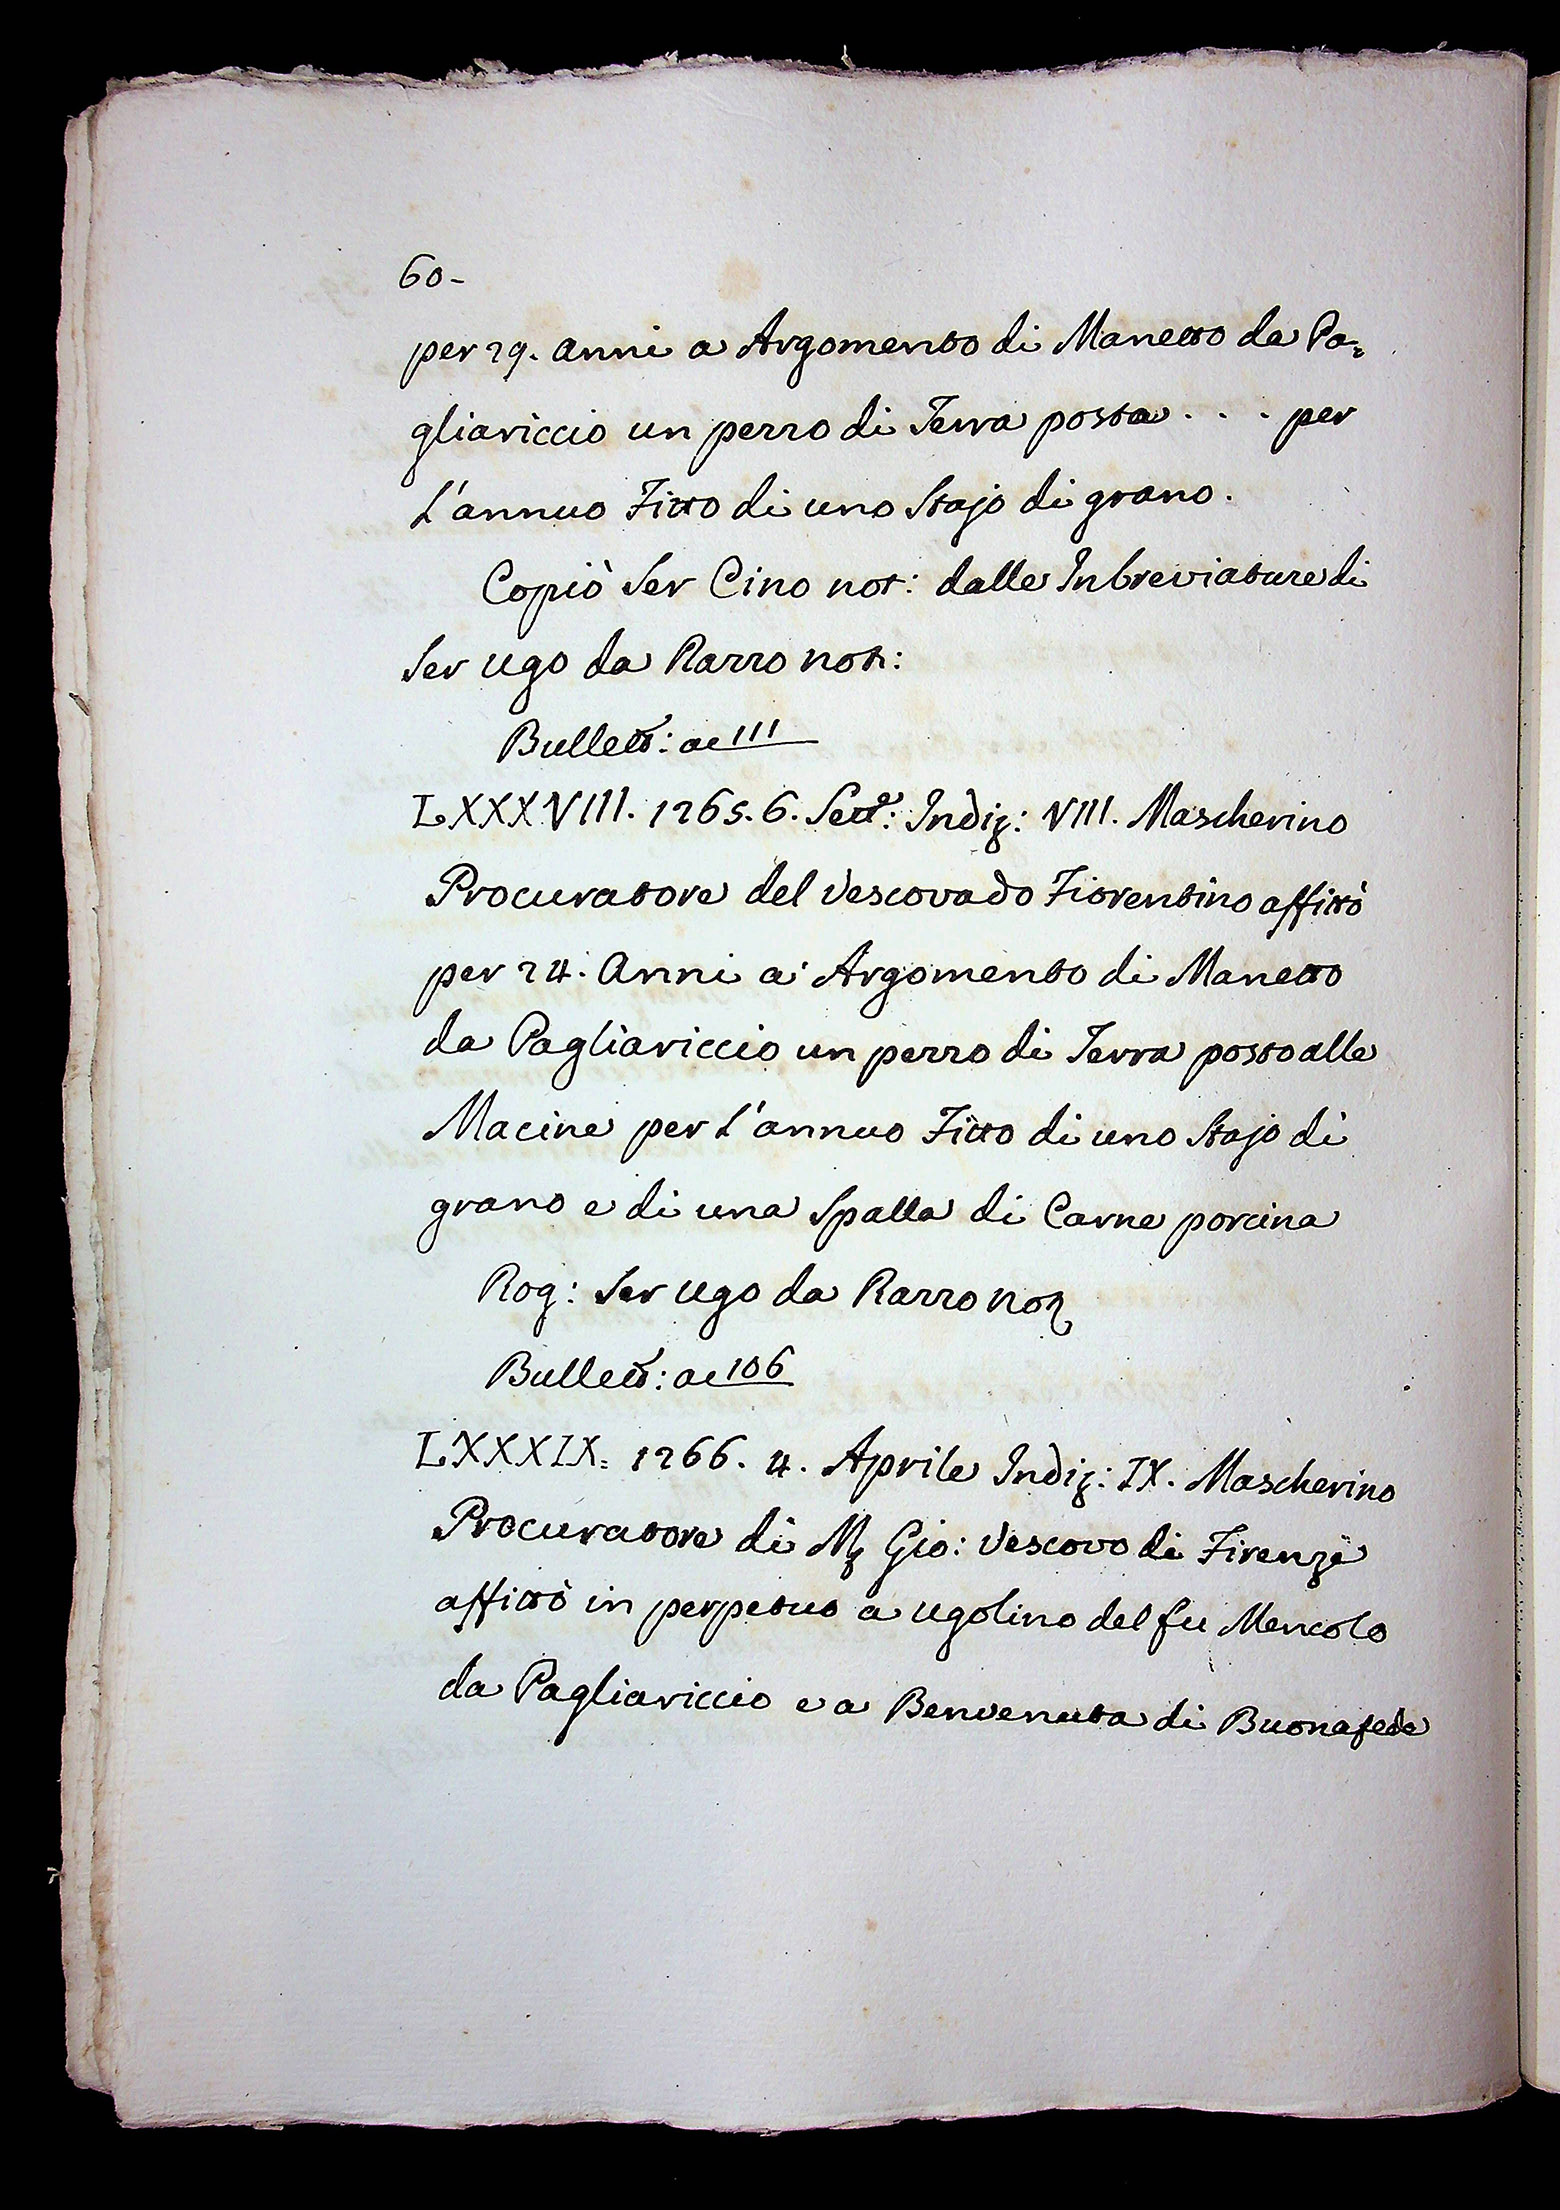 60-
per 29. anni a Argomento di Manetto da Pa=
gliariccio un pezzo di Terra posta . . . per
L'annuo Fitto di uno Stajo di grano.
Copiò Ser Cino not: dalle Inbreviature di
Ser Ugo da Razzo not:
Bullett: ac 111
LXXXVIII. 1265. 6. Sett.e: Indiz: VIII. Mascherino
Procuratore del Vescovado Fiorentino affittò
per 24. Anni a Argomento di Manetto
da Pagliariccio un pezzo di Terra posto alle
Macine per L'annuo Fitto di uno Stajo di
grano e di una Spalla di Carne porcina
Rog: Ser Ugo da Razzo not
Bullett: ac 106
LXXXIX= 1266. 4. Aprile Indiz: IX. Mascherino
Procuratore di Mz Gio: Vescovo di Firenze
affittò in perpetuo a Ugolino del fu Mencolo
da Pagliariccio e a Benvenuta di Buonafede